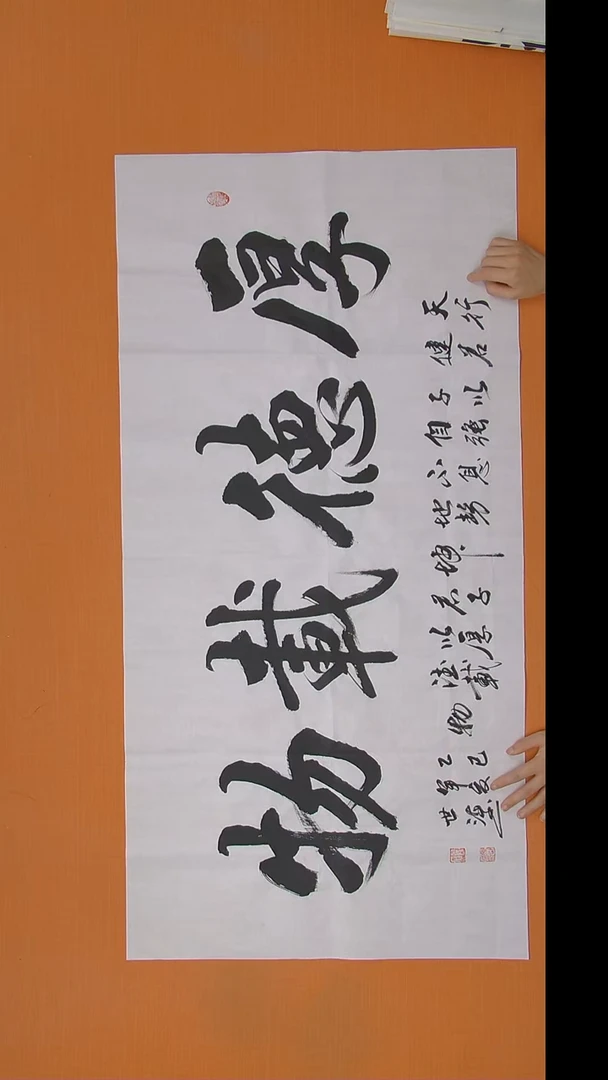 厚德載物
天行
健君
子以
自強
不息
地勢
坤
君子
以厚
德載
物
乙巳
年夏
世